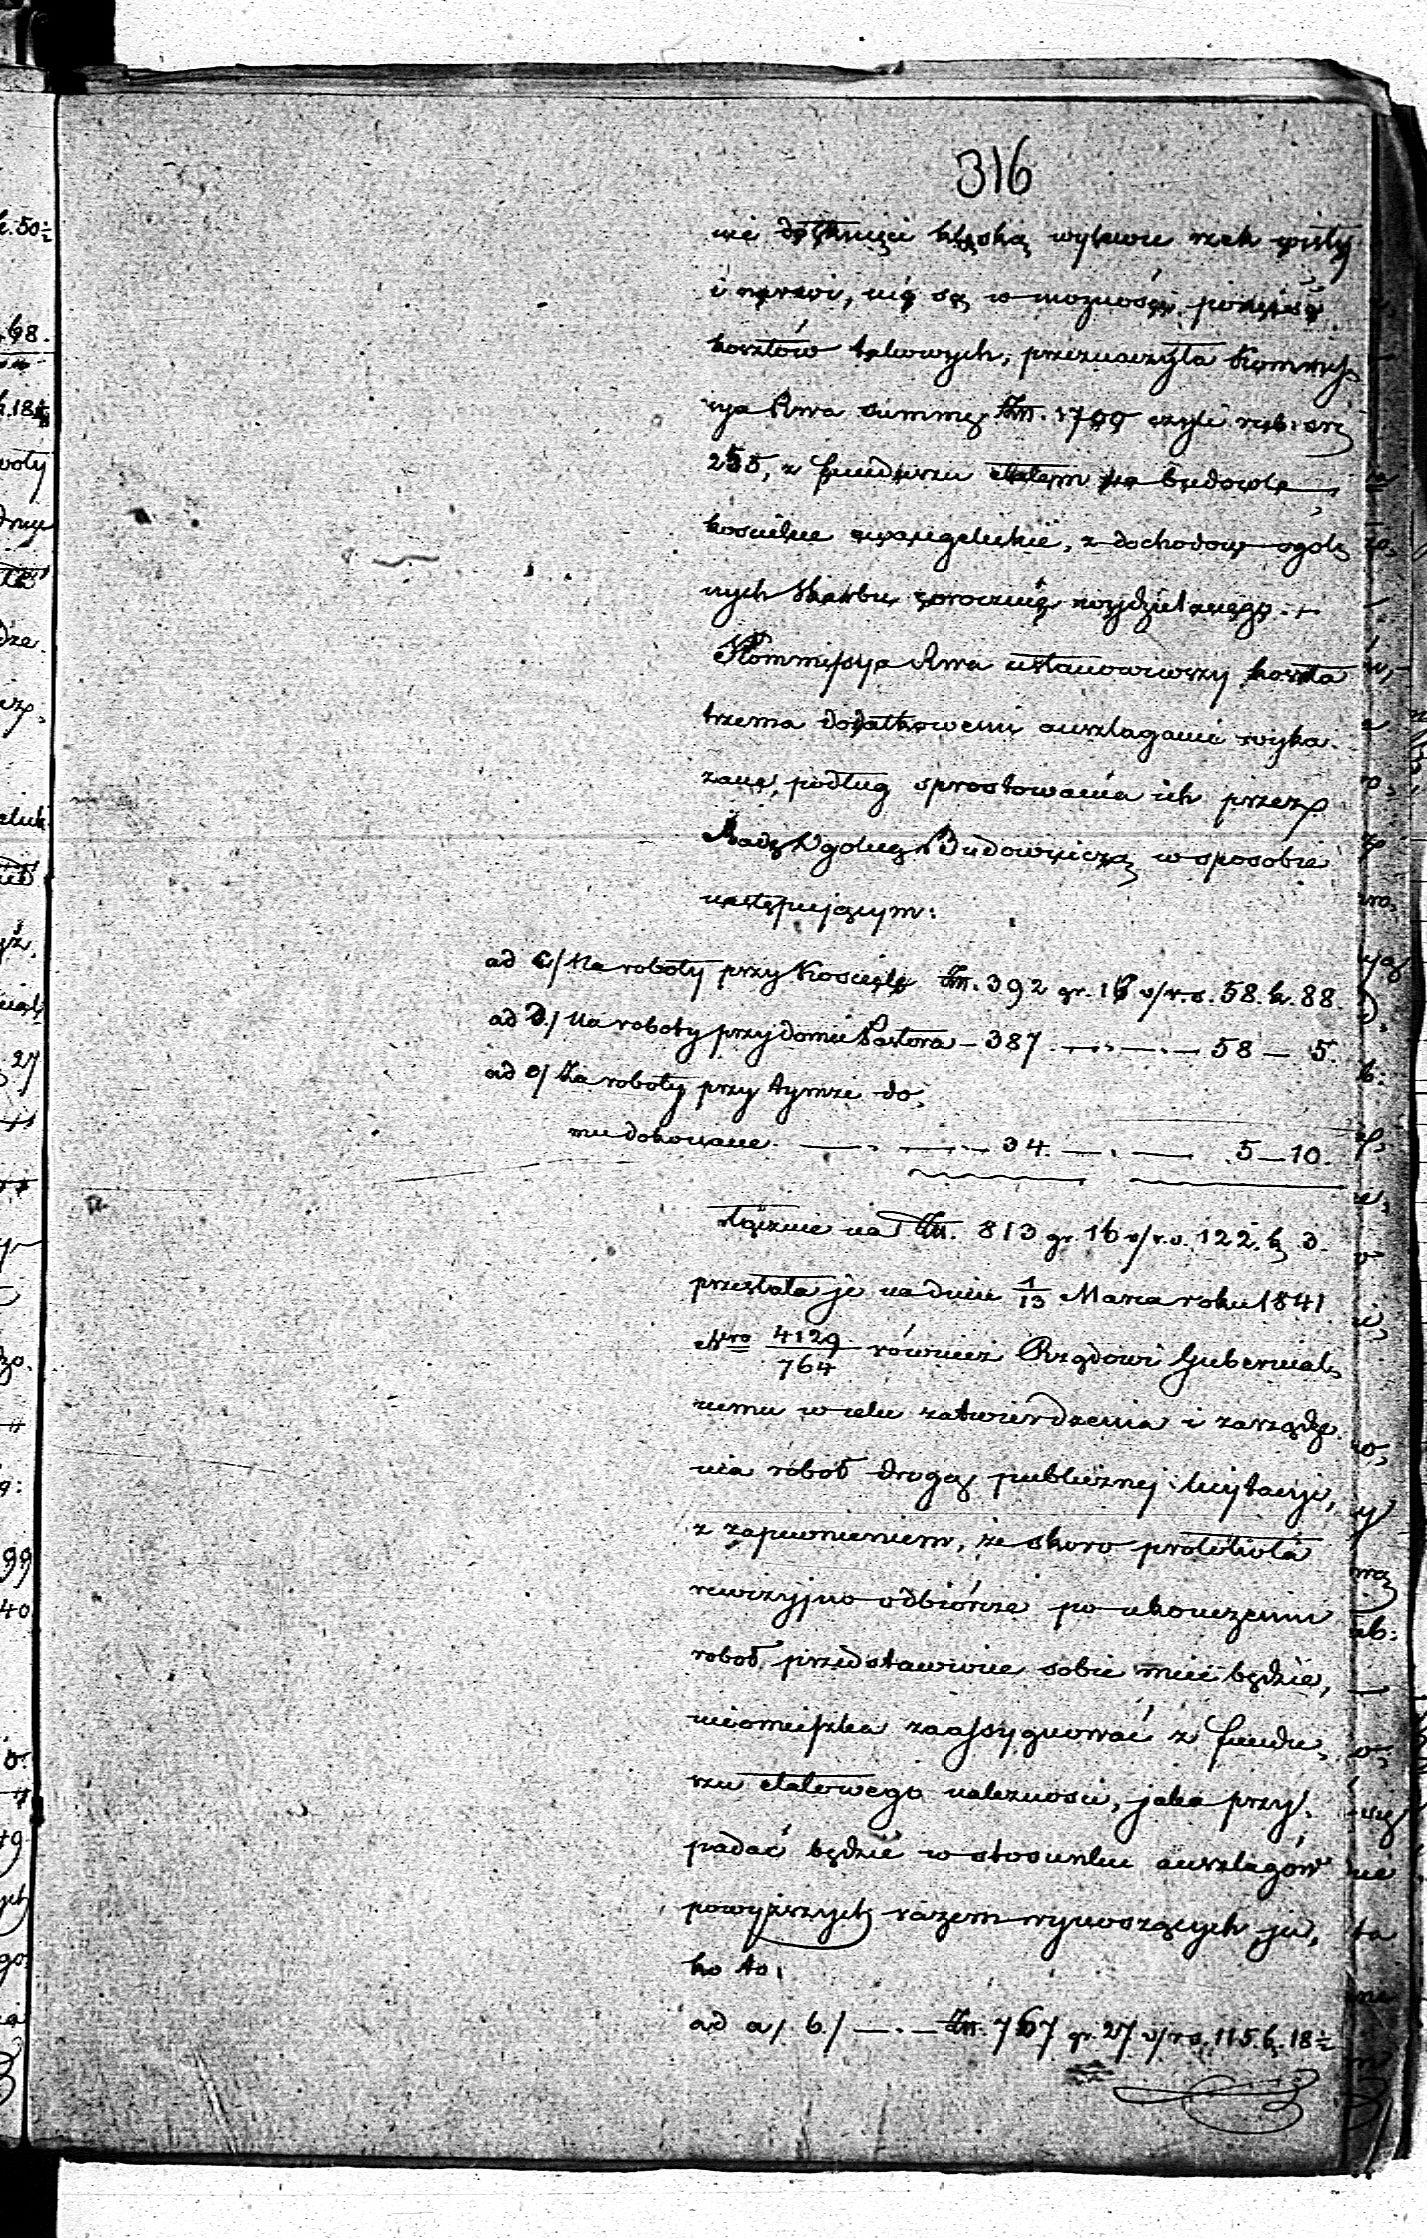 316
nie dotknięci klęską wylewu rzek Wisły
i Narwi, nie są w możności ponieść
kosztów takowych, przeznaczyła Kommis,
sya Rwa summę Złł. 1700 czyli rub: sr:
255, z funduszu etatem na budowle
kościelne ewangelickie, z dochodow ogól,
nych Skarbu corocznie
Kommissya Rwa ustanowiwszy koszta
trzema dodatkowemi anszlagami wyka
zane, podług sprostowania ich przez
Radę Ogolną Budowniczą w sposobie
następującym:
ad c/ Na roboty przy Kościele Złł. 392 gr. 16 v/ r. s. 58. k. 88.
ad d./ Na roboty przy domu Pastora – 387 — . — . — 58 — 5.
ad e/ Za roboty przy tymże do,
mu dokonane — . — . — 34. — . — 5 — 10.
łącznie na Złł. 813 gr. 16 v/ r. s. 122. k 3.
przesłała je na dniu 1/13 Marca roku 1841
Nro 4129/764 równiez Rządowi Gubernial,
nemu w celu zatwierdzenia i zarządze
nia robot drogą publicznej licytacyi,
z zapewnieniem, że skoro protokoła
rewizyjno odbiórcze po ukończeniu
robot przedstawione sobie mieć będzie,
nieomieszka zaassygnować z fundu,
szu etatowego należność, jaka przy,
padać będzie w stosunku anszlagów
powyższych razem wynoszących ja,
ko to:
ad a/ b/ — . — Złł. 767 gr. 27 v/ r s. 115. k. 18½